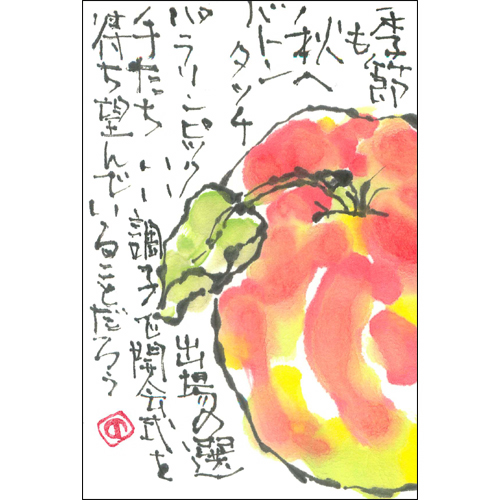 季節
も
秋へ
バトン
タッチ
パラリンピック 出場の選
手たち いい調子で開会式を
待ち望んでいることだろう